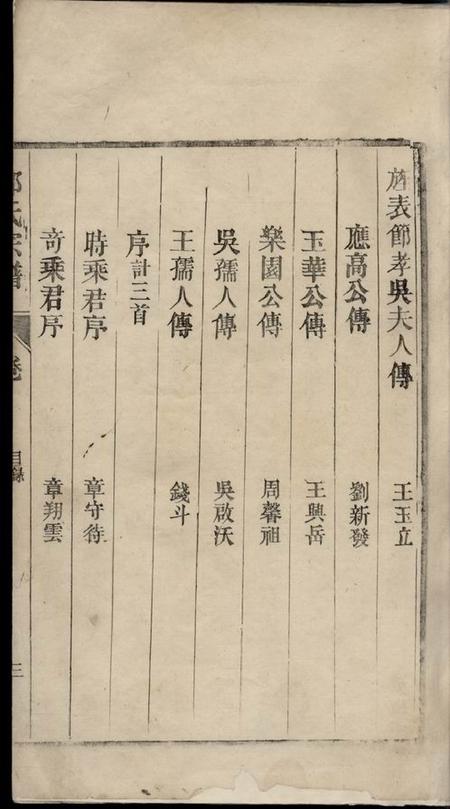 旌表節孝吳夫人傳 王玉立
應高公傳 劉新發
玉華公傳 王興岳
樂園公傳 周馨祖
吳孺人傳 吳啟沃
王孺人傳 錢斗
序計三首
時乘君序 章守待
竒乘君序 章翔雲
氏宗譜 卷 目錄 三